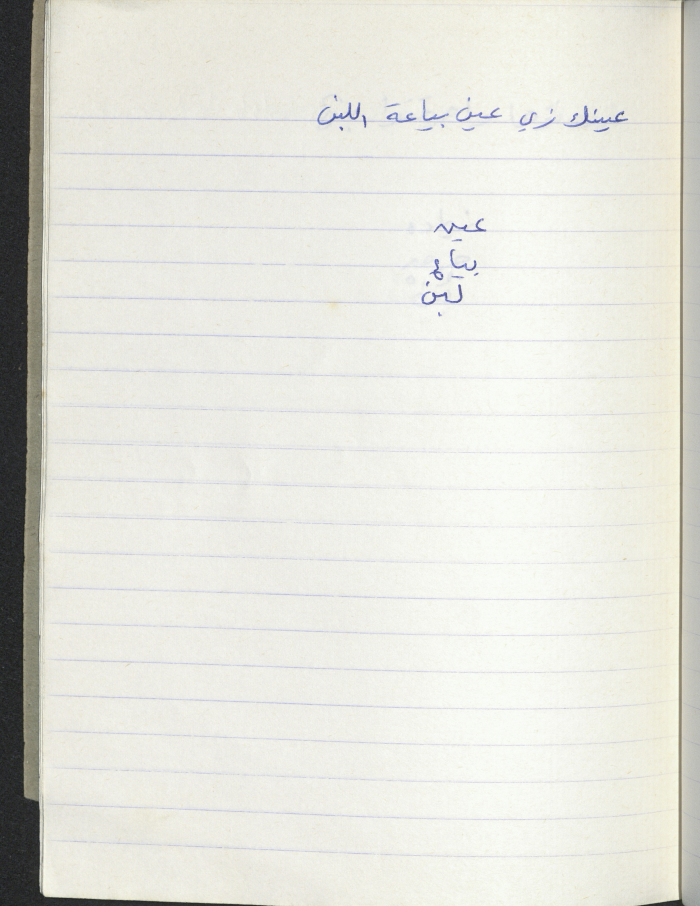 عينك زي عين بياعة اللبن
عين
بياع
لبن